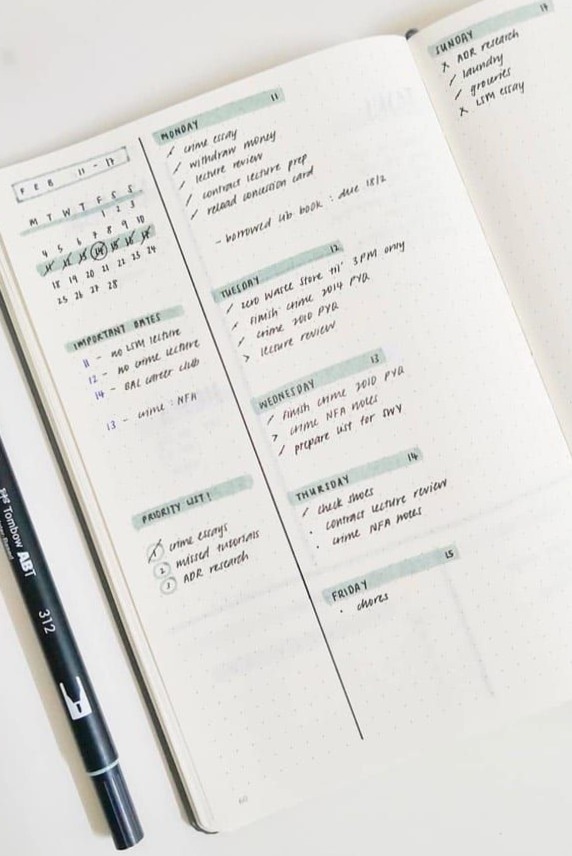 FEB 11 - 17
M T W T F S S
1 2 3
4 5 6 7 8 9 10
11 12 13 14 15 16 17
18 19 20 21 22 23 24
25 26 27 28
IMPORTANT DATES
11 - no LSM lecture
12 - no crime lecture
14 - BAL career club
13 - crime : NFA
PRIORITY LIST!
1 crime essays
2 missed tutorials
3 ADR research
MONDAY 11
/ crime essay
/ withdraw money
/ lecture review
/ contract lecture prep
/ reload concession card
- borrowed lib book : due 18/2
TUESDAY 12
/ zero waste store til' 3PM only
/ finish crime 2014 PYQ
/ crime 2010 PYQ
> lecture review
WEDNESDAY 13
/ finish crime 2010 PYQ
> crime NFA notes
/ prepare list for SWY
THURSDAY 14
/ check shoes
· contract lecture review
· crime NFA notes
FRIDAY 15
· chores
SUNDAY 17
x ADR research
/ laundry
/ groceries
x LSM essay
Tombow ABT
312